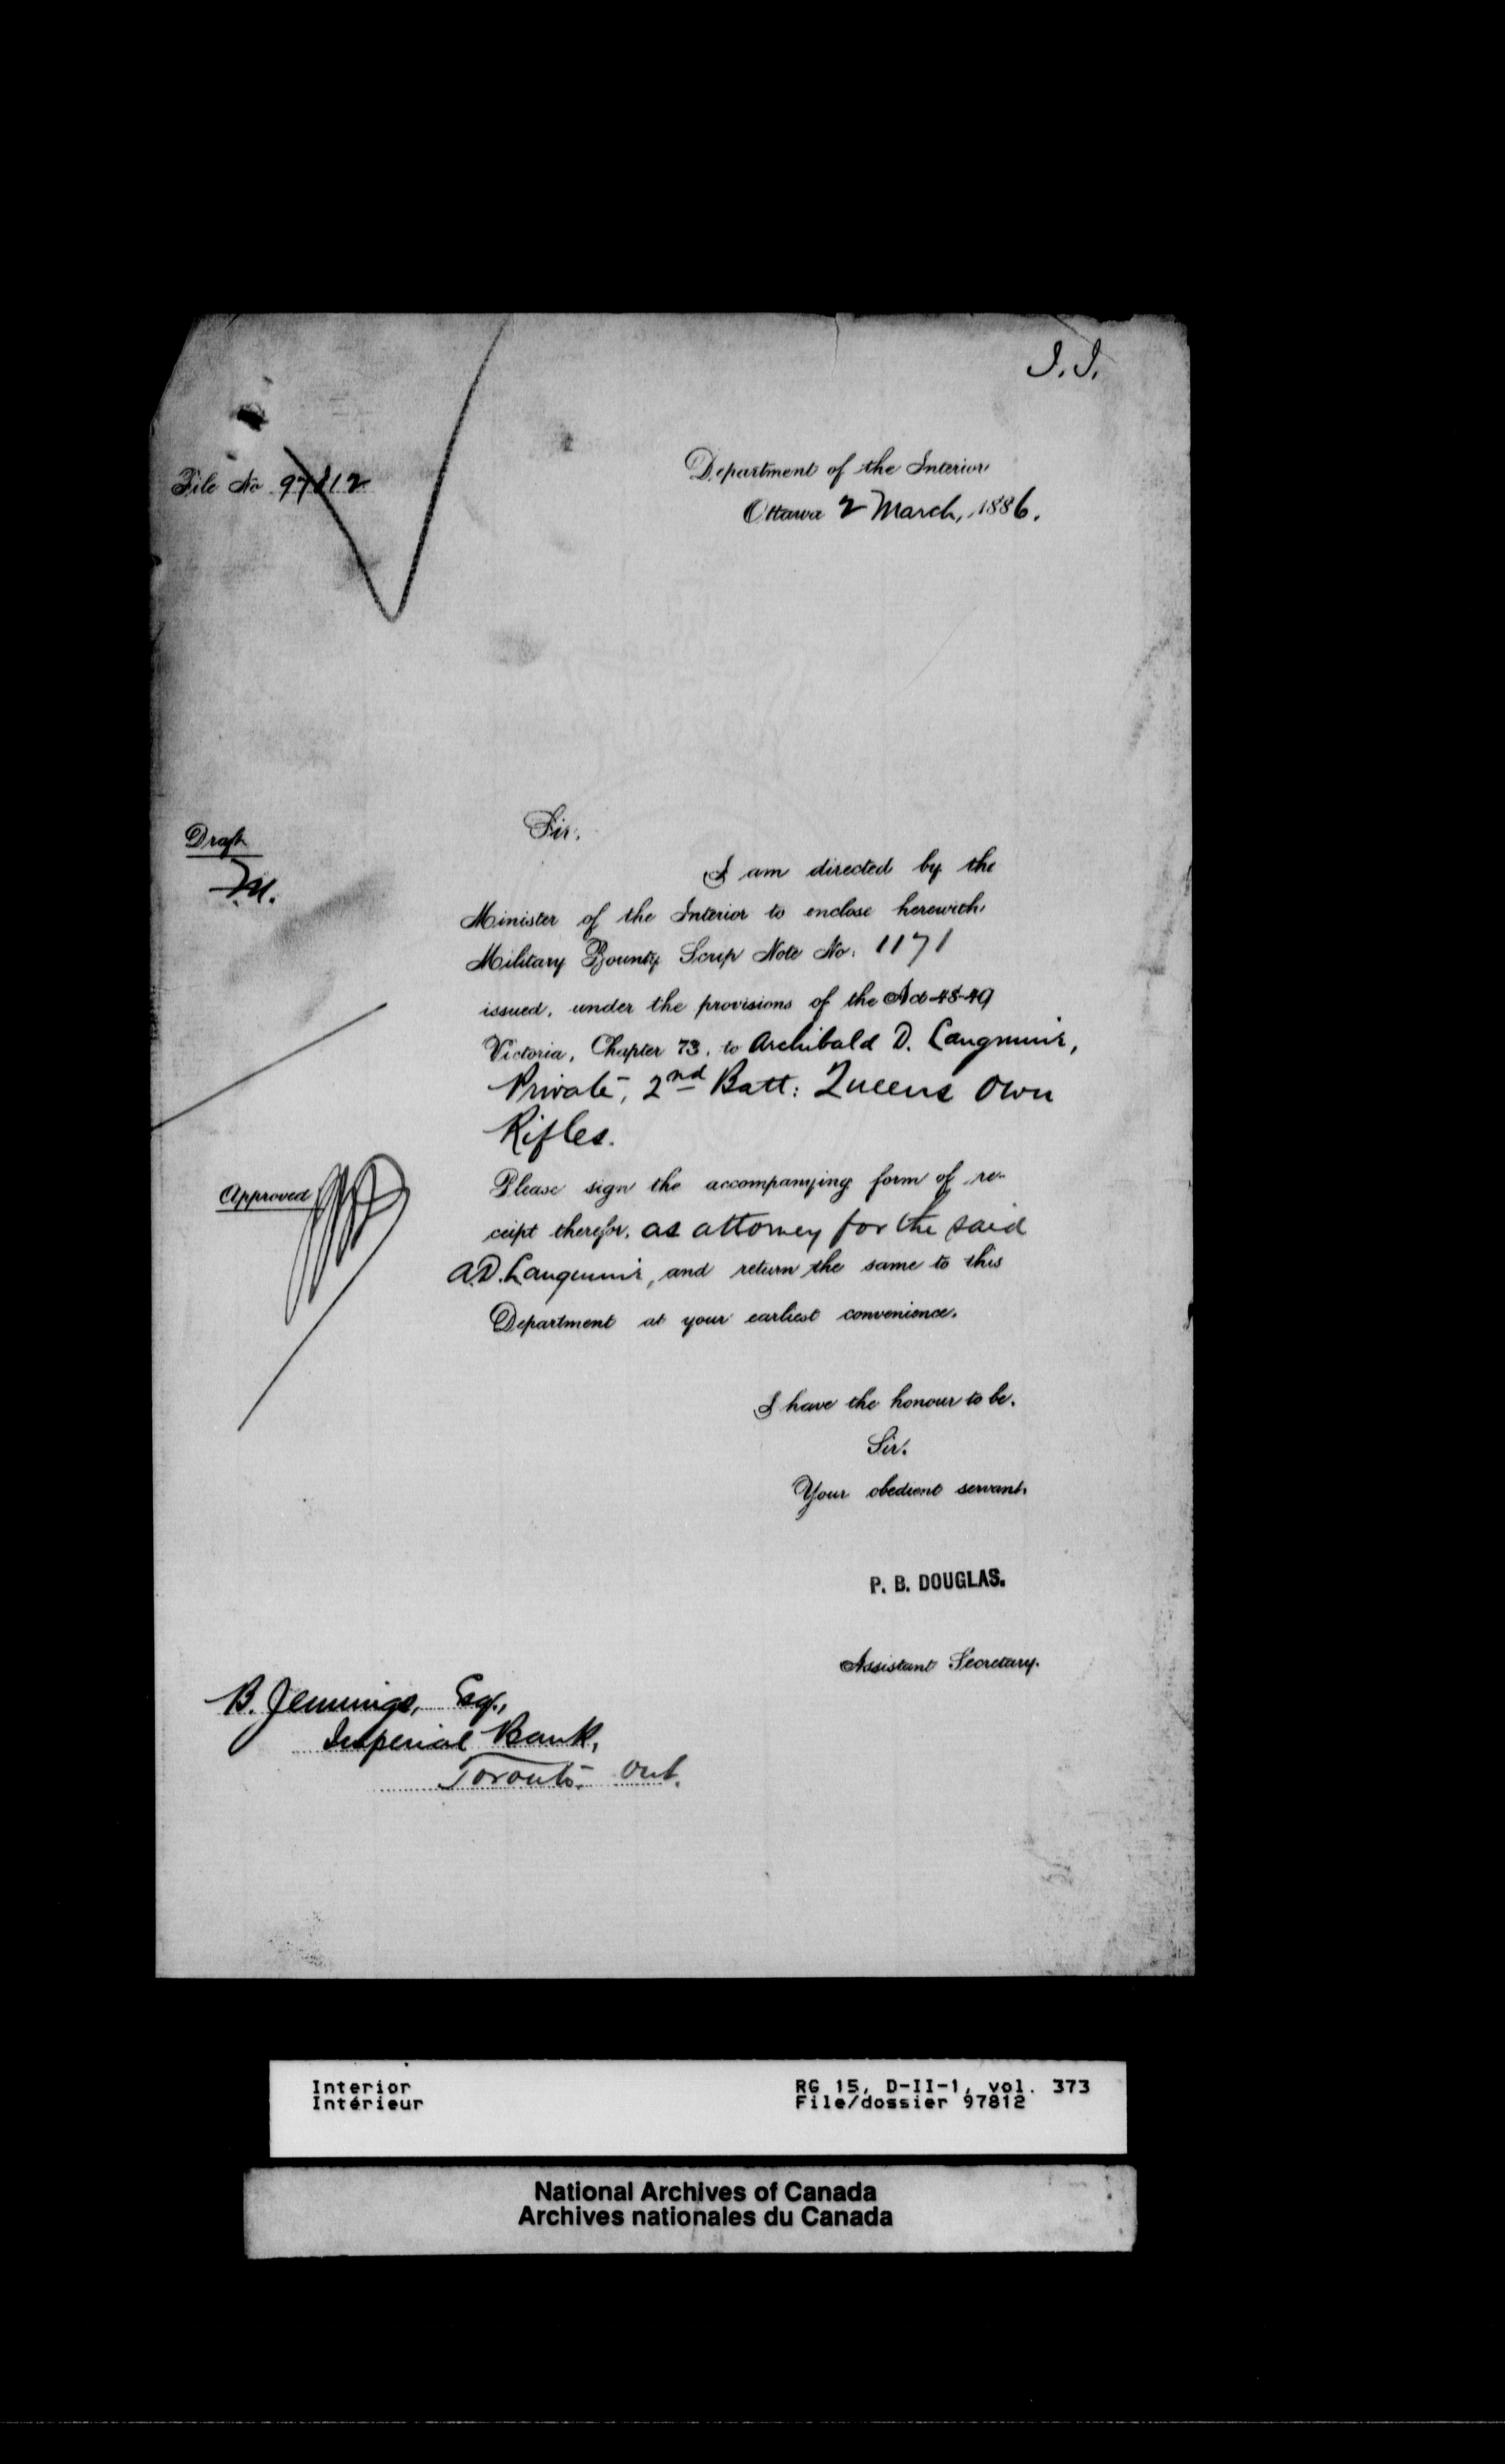 J.J.
File No 97812
Department of the Interior
Ottawa 2 March, 1886.
Draft
Sir,
I am directed by the
Minister of the Interior to enclose herewith
Military Bounty Scrip Note No. 1171
issued, under the provisions of the Act 48-49
Victoria, Chapter 73, to Archibald D. Langmuir,
Private, 2nd Batt: Queens Own
Rifles.
Approved
Please sign the accompanying form of re-
ceipt therefor, as attorney for the said
A.D. Langmuir, and return the same to this
Department at your earliest convenience.
I have the honour to be,
Sir,
Your obedient servant,
P. B. DOUGLAS.
Assistant Secretary.
B. Jennings, Esq.,
Imperial Bank,
Toronto. Ont.
Interior
Intérieur
RG 15, D-II-1, vol. 373
File/dossier 97812
National Archives of Canada
Archives nationales du Canada